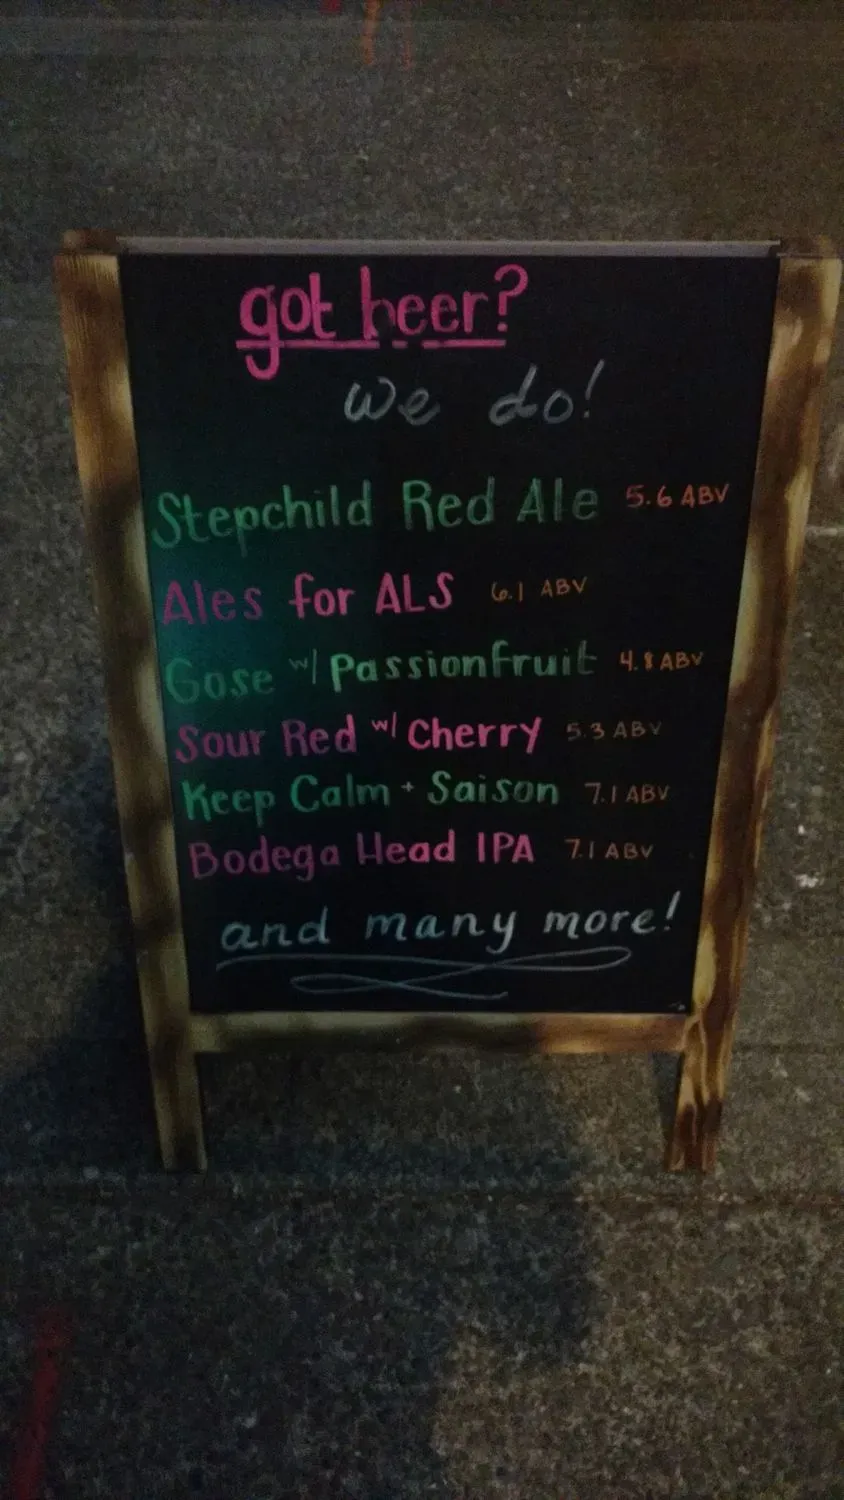 got beer?
we do!
Stepchild Red Ale 5.6 ABV
Ales for ALS 6.1 ABV
Gose w/ Passionfruit 4.8 ABV
Sour Red w/ Cherry 5.3 ABV
Keep Calm + Saison 7.1 ABV
Bodega Head IPA 7.1 ABV
and many more!